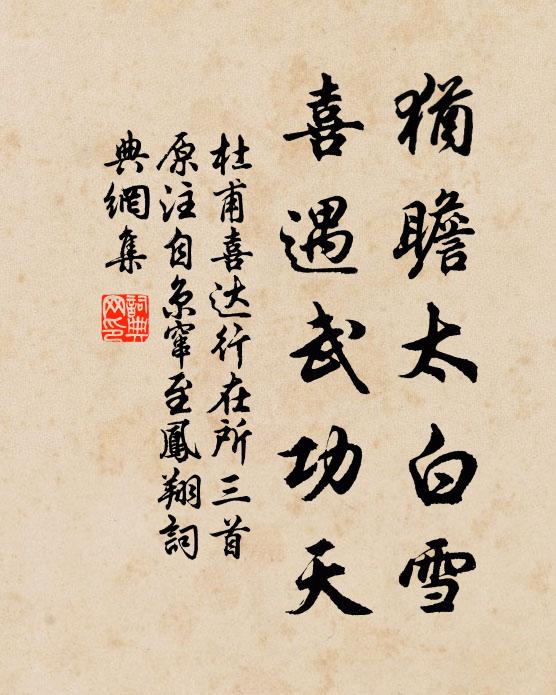 猶瞻太白雪
喜遇武功天
杜甫喜达行在所三首
原注自京窜至鳳翔詞
典網集
詞典网印